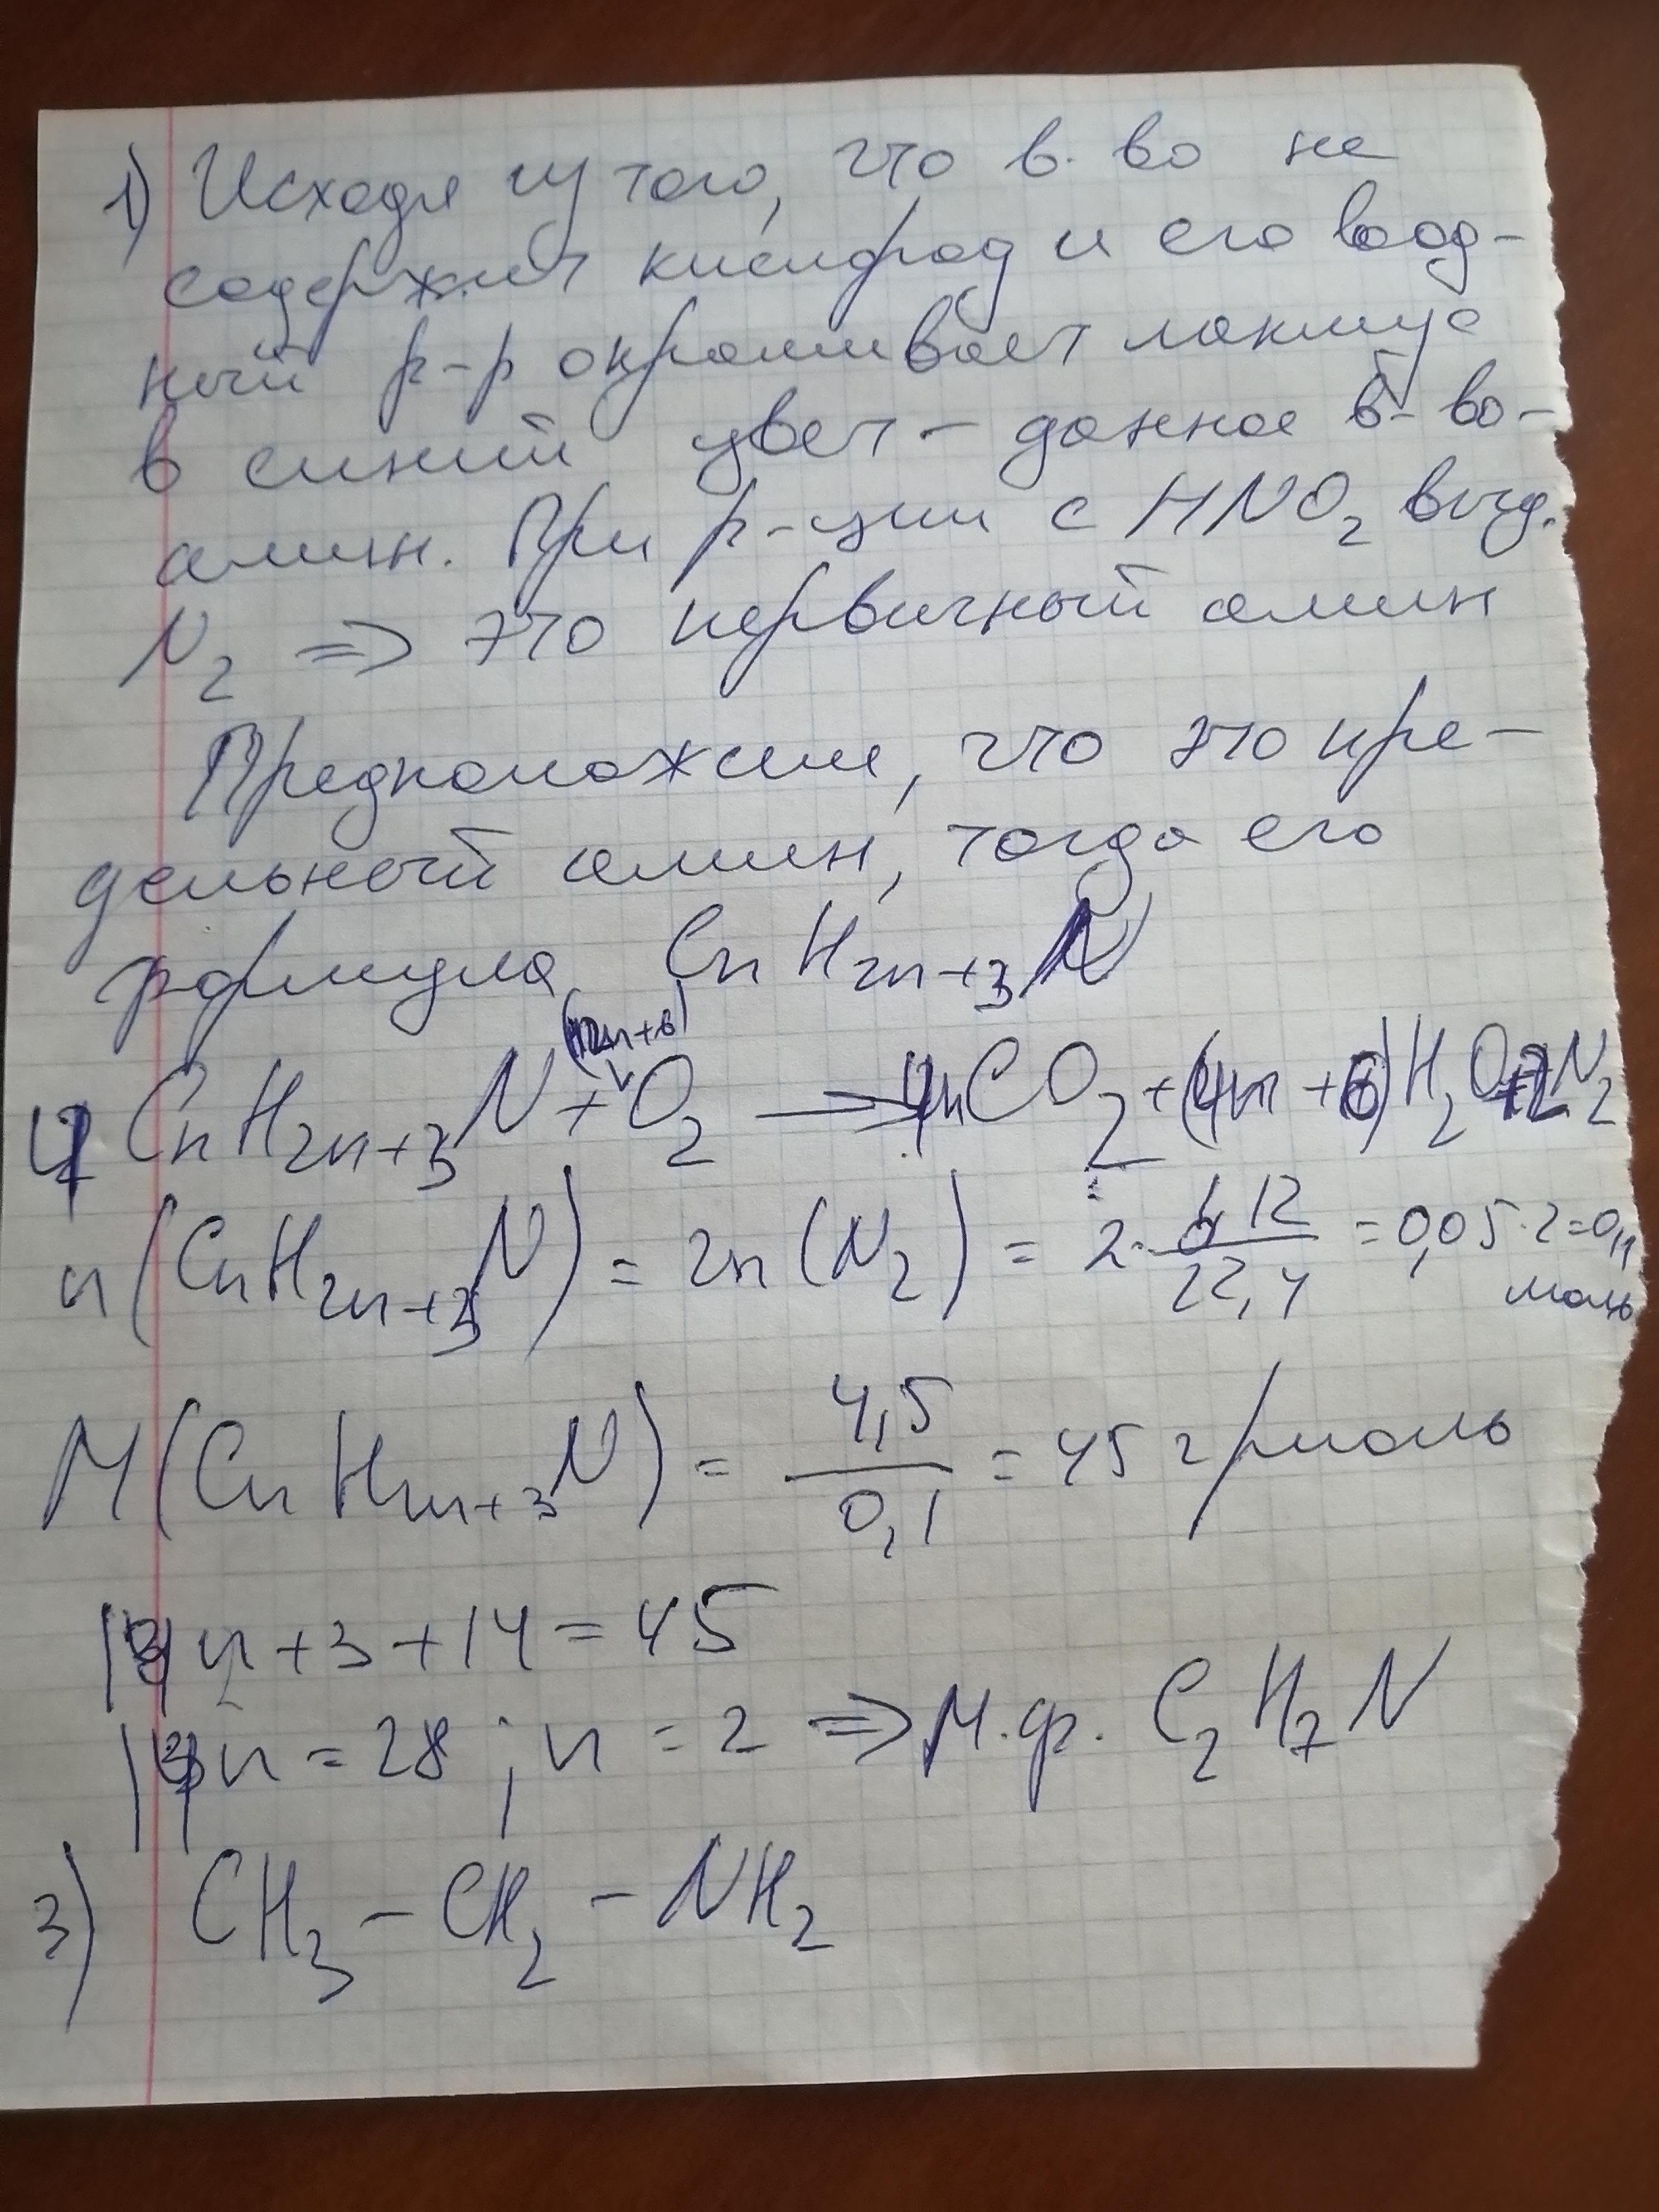 1) Исходя из того, что в-во не
содержит кислород и его вод-
ный р-р окрашивает лакмус
в синий цвет - данное в-во -
амин. При р-ции с HNO₂ выд.
N₂ => это первичный амин
Предположим, что это пре-
дельный амин, тогда его
формула CnH2n+3N
4CnH2n+3N + O₂ → 4nCO₂ + (4n+6)H₂O + 2N₂
n(CnH2n+3N) = 2n(N₂) = 2·1,12/22,4 = 0,05·2=0,1
моль
M(CnH2n+3N) = 4,5/0,1 = 45 г/моль
14n+3+14=45
14n = 28; n = 2 => м.ф. C₂H₇N
3) CH₃-CH₂-NH₂